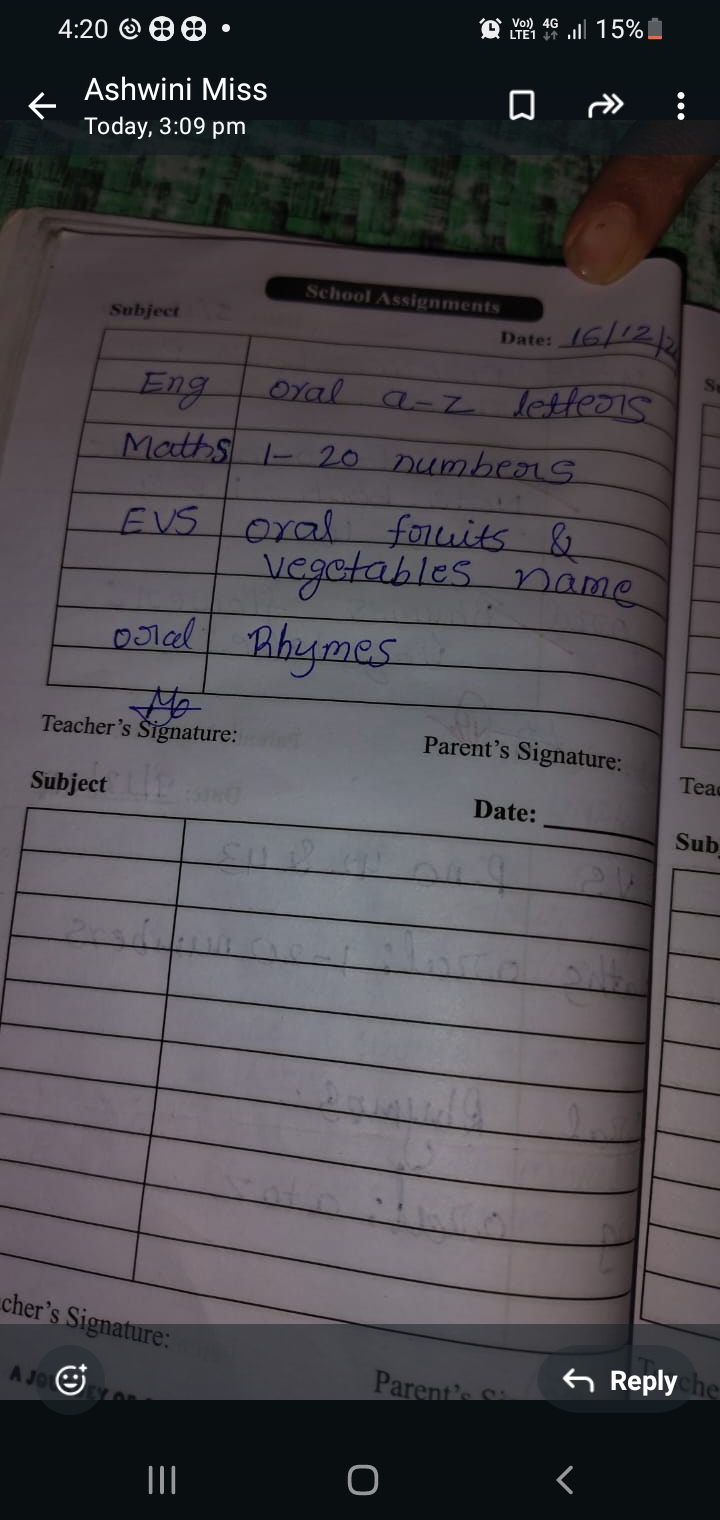 4:20 15%
Vo)) 4G
LTE1
Ashwini Miss
Today, 3:09 pm
School Assignments
Subject
Date: 16/12/2
Eng oral a-z letters
Maths 1-20 numbers
EVS oral fruits &
vegetables name
oral Rhymes
Teacher's Signature:
Parent's Signature:
Subject
Date:
Tea
Sub
cher's Signature:
Parent's Si
Reply